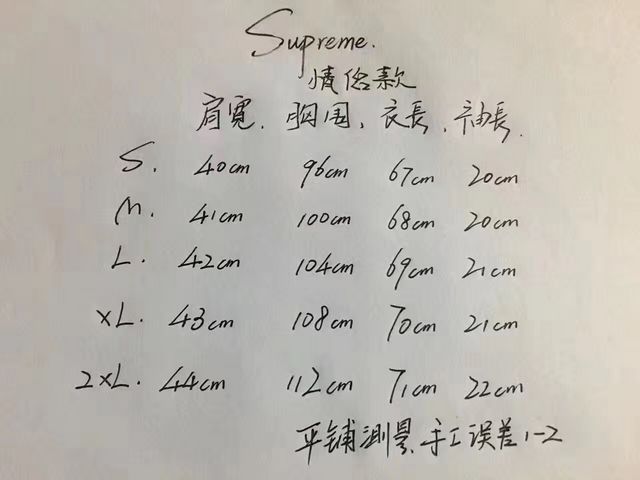 Supreme.
情侣款
肩寬, 胸围, 衣長, 袖長.
S. 40cm 96cm 67cm 20cm
M. 41cm 100cm 68cm 20cm
L. 42cm 104cm 69cm 21cm
XL. 43cm 108cm 70cm 21cm
2XL. 44cm 112cm 71cm 22cm
平铺测量,手工误差1-2